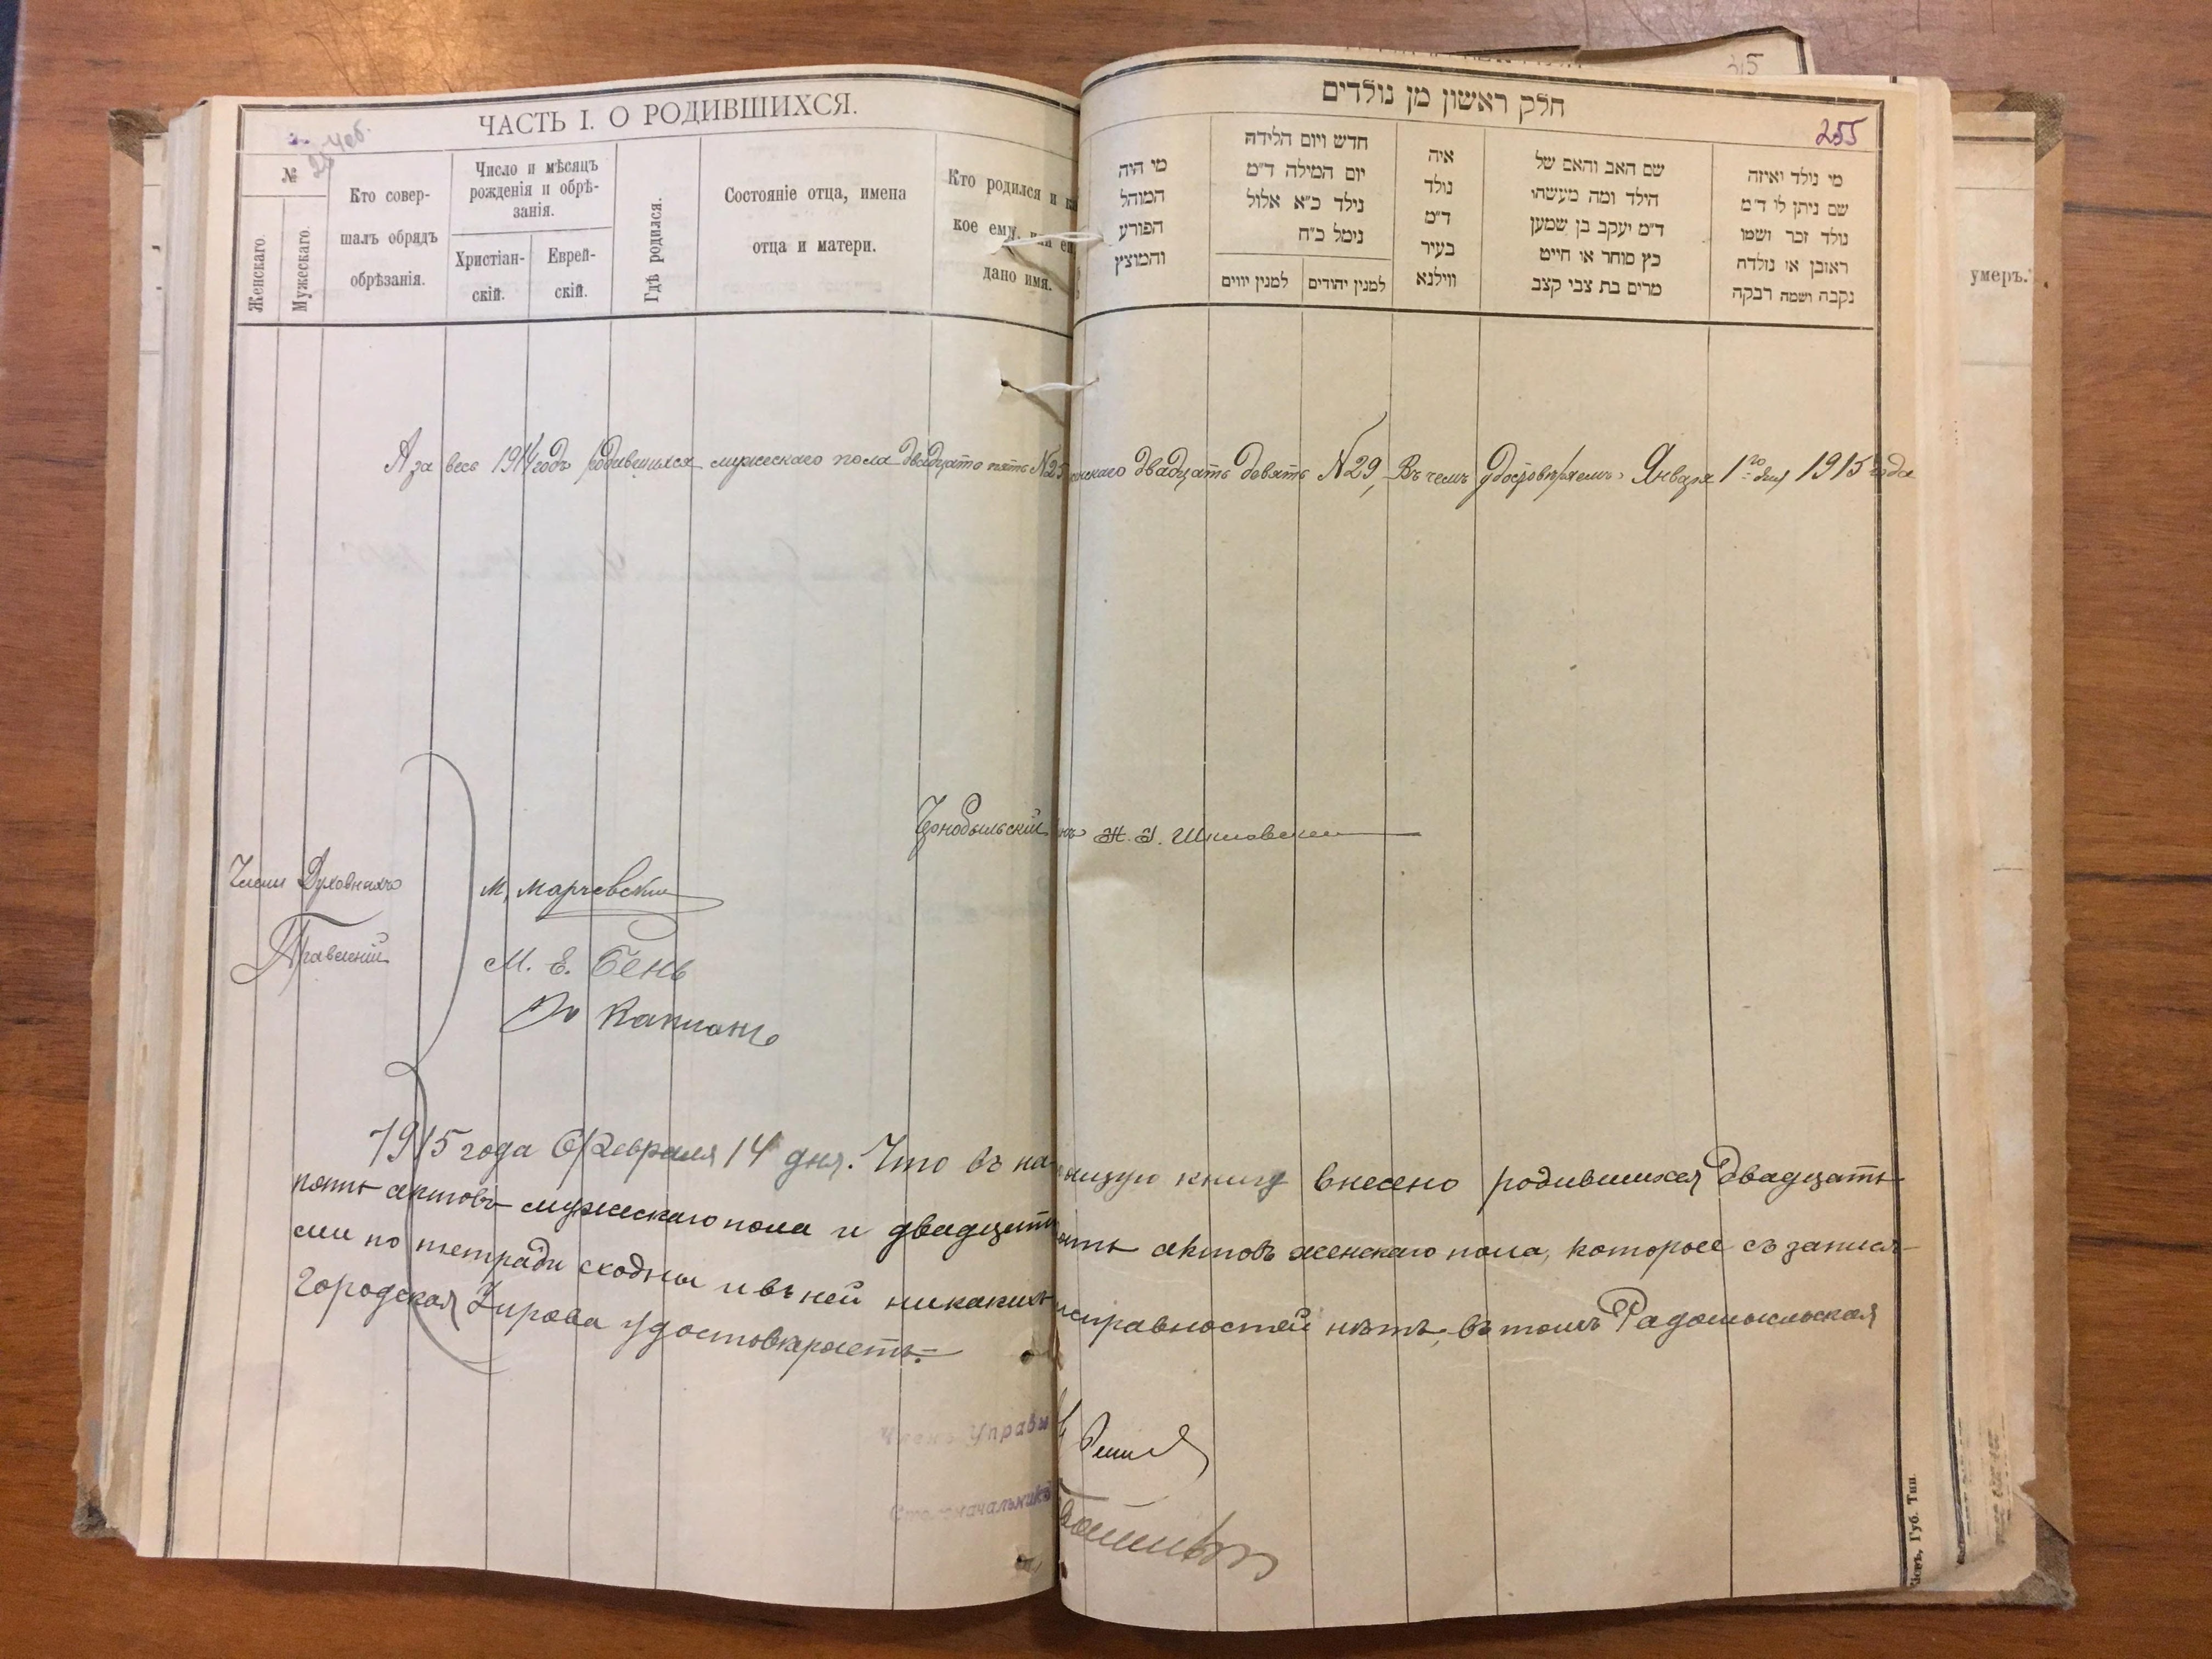 ЧАСТЬ I. О РОДИВШИХСЯ.
№
Женскаго.
Мужескаго.
Кто совер-
шалъ обрядъ
обрѣзанія.
Число и мѣсяцъ
рожденія и обрѣ-
занія.
Христіан-
скій.
Еврей-
скій.
Гдѣ родился.
Состояніе отца, имена
отца и матери.
Кто родился и ка
кое ему, или ей
дано имя.
חלק ראשון מן נולדים
255
מי נולד ואיזה
שם ניתן לו ד״מ
נולד זכר ושמו
ראובן או נולדה
נקבה ושמה רבקה
שם האב והאם של
הילד ומה מעשהו
ד״מ יעקב בן שמען
כץ סוחר או חייט
מרים בת צבי קצב
איה
נולד
ד״מ
בעיר
ווילנא
חדש ויום הלידה
יום המילה ד״מ
נילד כ״א אלול
נימל כ״ח
למנין יהודים
למנין יווים
מי היה
המוהל
הפורע
והמוצץ
умеръ.
А за весь 1914 годъ родившихся мужескаго пола двадцать пять №25 нскаго двадцать девять №29, Въ чемъ удостовѣряемъ. Января 1го дня 1915 года
Чорнобыльскій нъ Шкловскій
Члены Духовнаго
Правленія
М. Марчевскій
М. Е. Бень
Капланъ
1915 года Февраля 14 дня. Что въ на ящую книгу внесено родившихся двадцать
пять актовъ мужескаго пола и двадцать ять актовъ женскаго пола, которые съ запися-
ми по тетради сходны и въ ней никакихъ исправностей нѣтъ, въ томъ Радомысльская
Городская Управа удостовѣряетъ.
Членъ Управы
Столоначальникъ
Кіевъ, Губ. Тип.